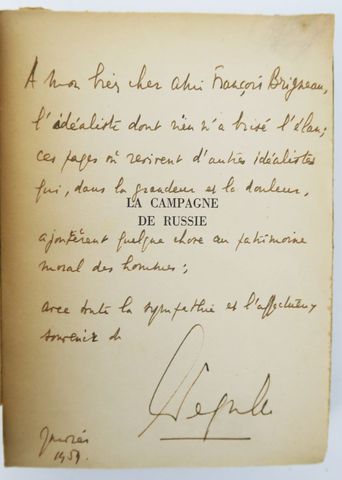 A mon très cher ami François Brigneau,
l'idéaliste dont rien n'a brisé l'élan;
ces pages où revivent d'autres idéalistes
qui, dans la grandeur et la douleur,
LA CAMPAGNE
DE RUSSIE
ajoutèrent quelque chose au patrimoine
moral des hommes;
avec toute la sympathie et l'affectueux
souvenir de
1959.